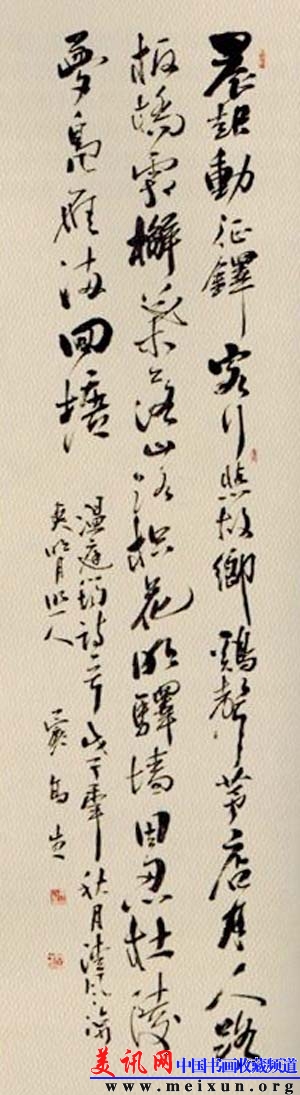 晨起動征鐸客行悲故鄉鷄聲茅店月人跡
板橋霜槲葉落山路枳花明驛墻因思杜陵
夢鳧雁滿回塘
温庭筠詩一首戊子年秋月清風
爽明月照人
美讯网 中国书画收藏频道
www.meixun.org